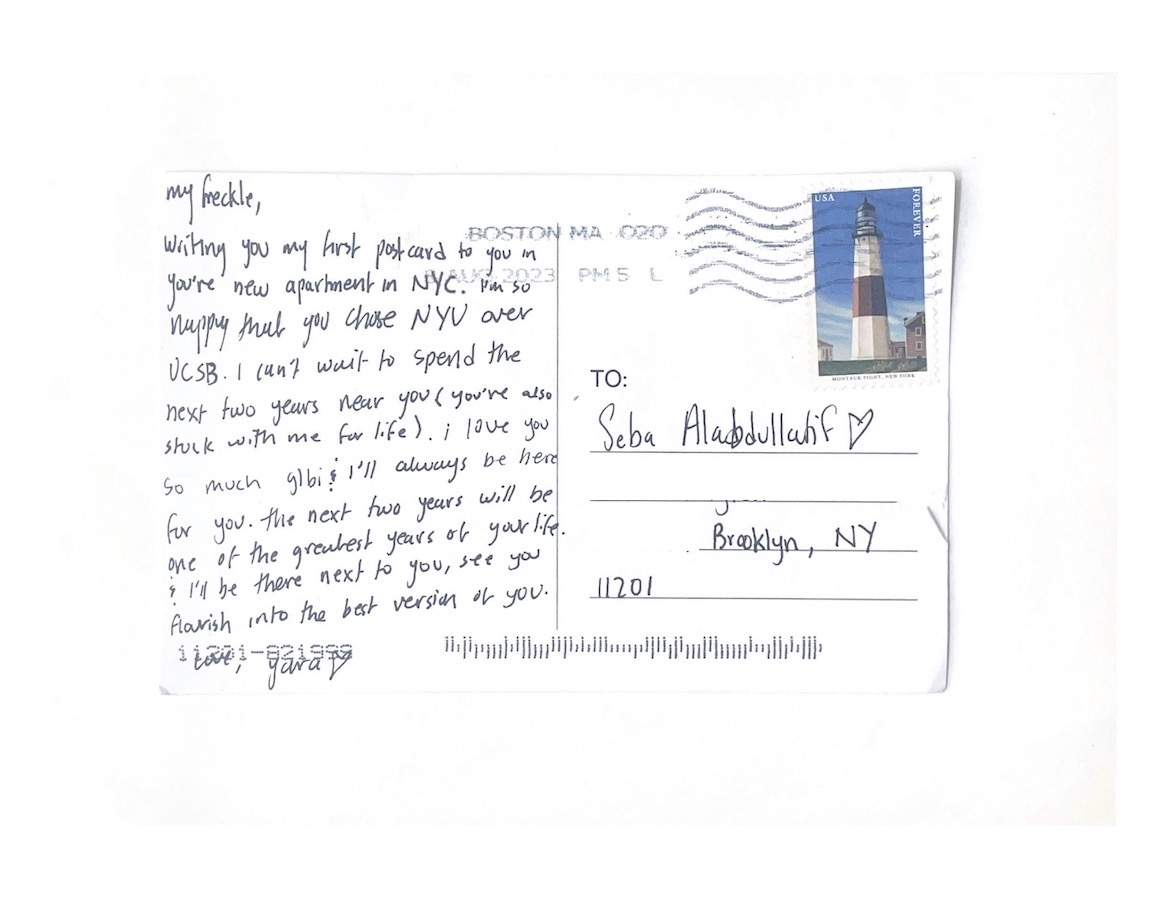 my freckle,
Writing you my first postcard to you in
you're new apartment in NYC. I'm so
happy that you chose NYU over
UCSB. I can't wait to spend the
next two years near you (you're also
stuck with me for life). i love you
so much glbi & I'll always be here
for you. the next two years will be
one of the greatest years of your life.
& I'll be there next to you, see you
flourish into the best version of you.
Love, yara ♡
11201-821999
BOSTON MA 020
AUG 2023 PM 5 L
USA
FOREVER
MONTAUK POINT, NEW YORK
TO:
Seba Alabdullatif ♡
Brooklyn, NY
11201